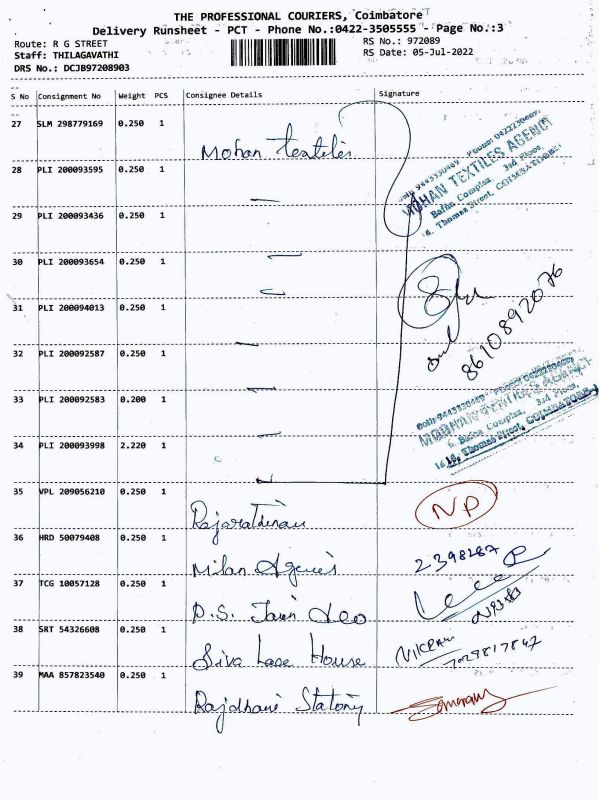 THE PROFESSIONAL COURIERS, Coimbatore
Delivery Runsheet - PCT - Phone No.:0422-3505555 - Page No.:3
Route: R G STREET
RS No.: 972089
Staff: THILAGAVATHI
RS Date: 05-Jul-2022
DRS No.: DCJB97208903
S No Consignment No Weight PCS Consignee Details Signature
27 SLM 298779169 0.250 1 Mohan Textiles
MOHAN TEXTILES AGENCY
28 PLI 200093595 0.250 1
29 PLI 200093436 0.250 1
30 PLI 200093654 0.250 1
31 PLI 200094013 0.250 1
8610892076
32 PLI 200092587 0.250 1
33 PLI 200092583 0.200 1
34 PLI 200093998 2.220 1
35 VPL 209056210 0.250 1 NP
36 HRD 50079408 0.250 1 Milan
37 TCG 10057128 0.250 1 P.S. Jain
38 SRT 54326608 0.250 1 Siva Lase House
39 MAA 857823540 0.250 1 Rajdhani